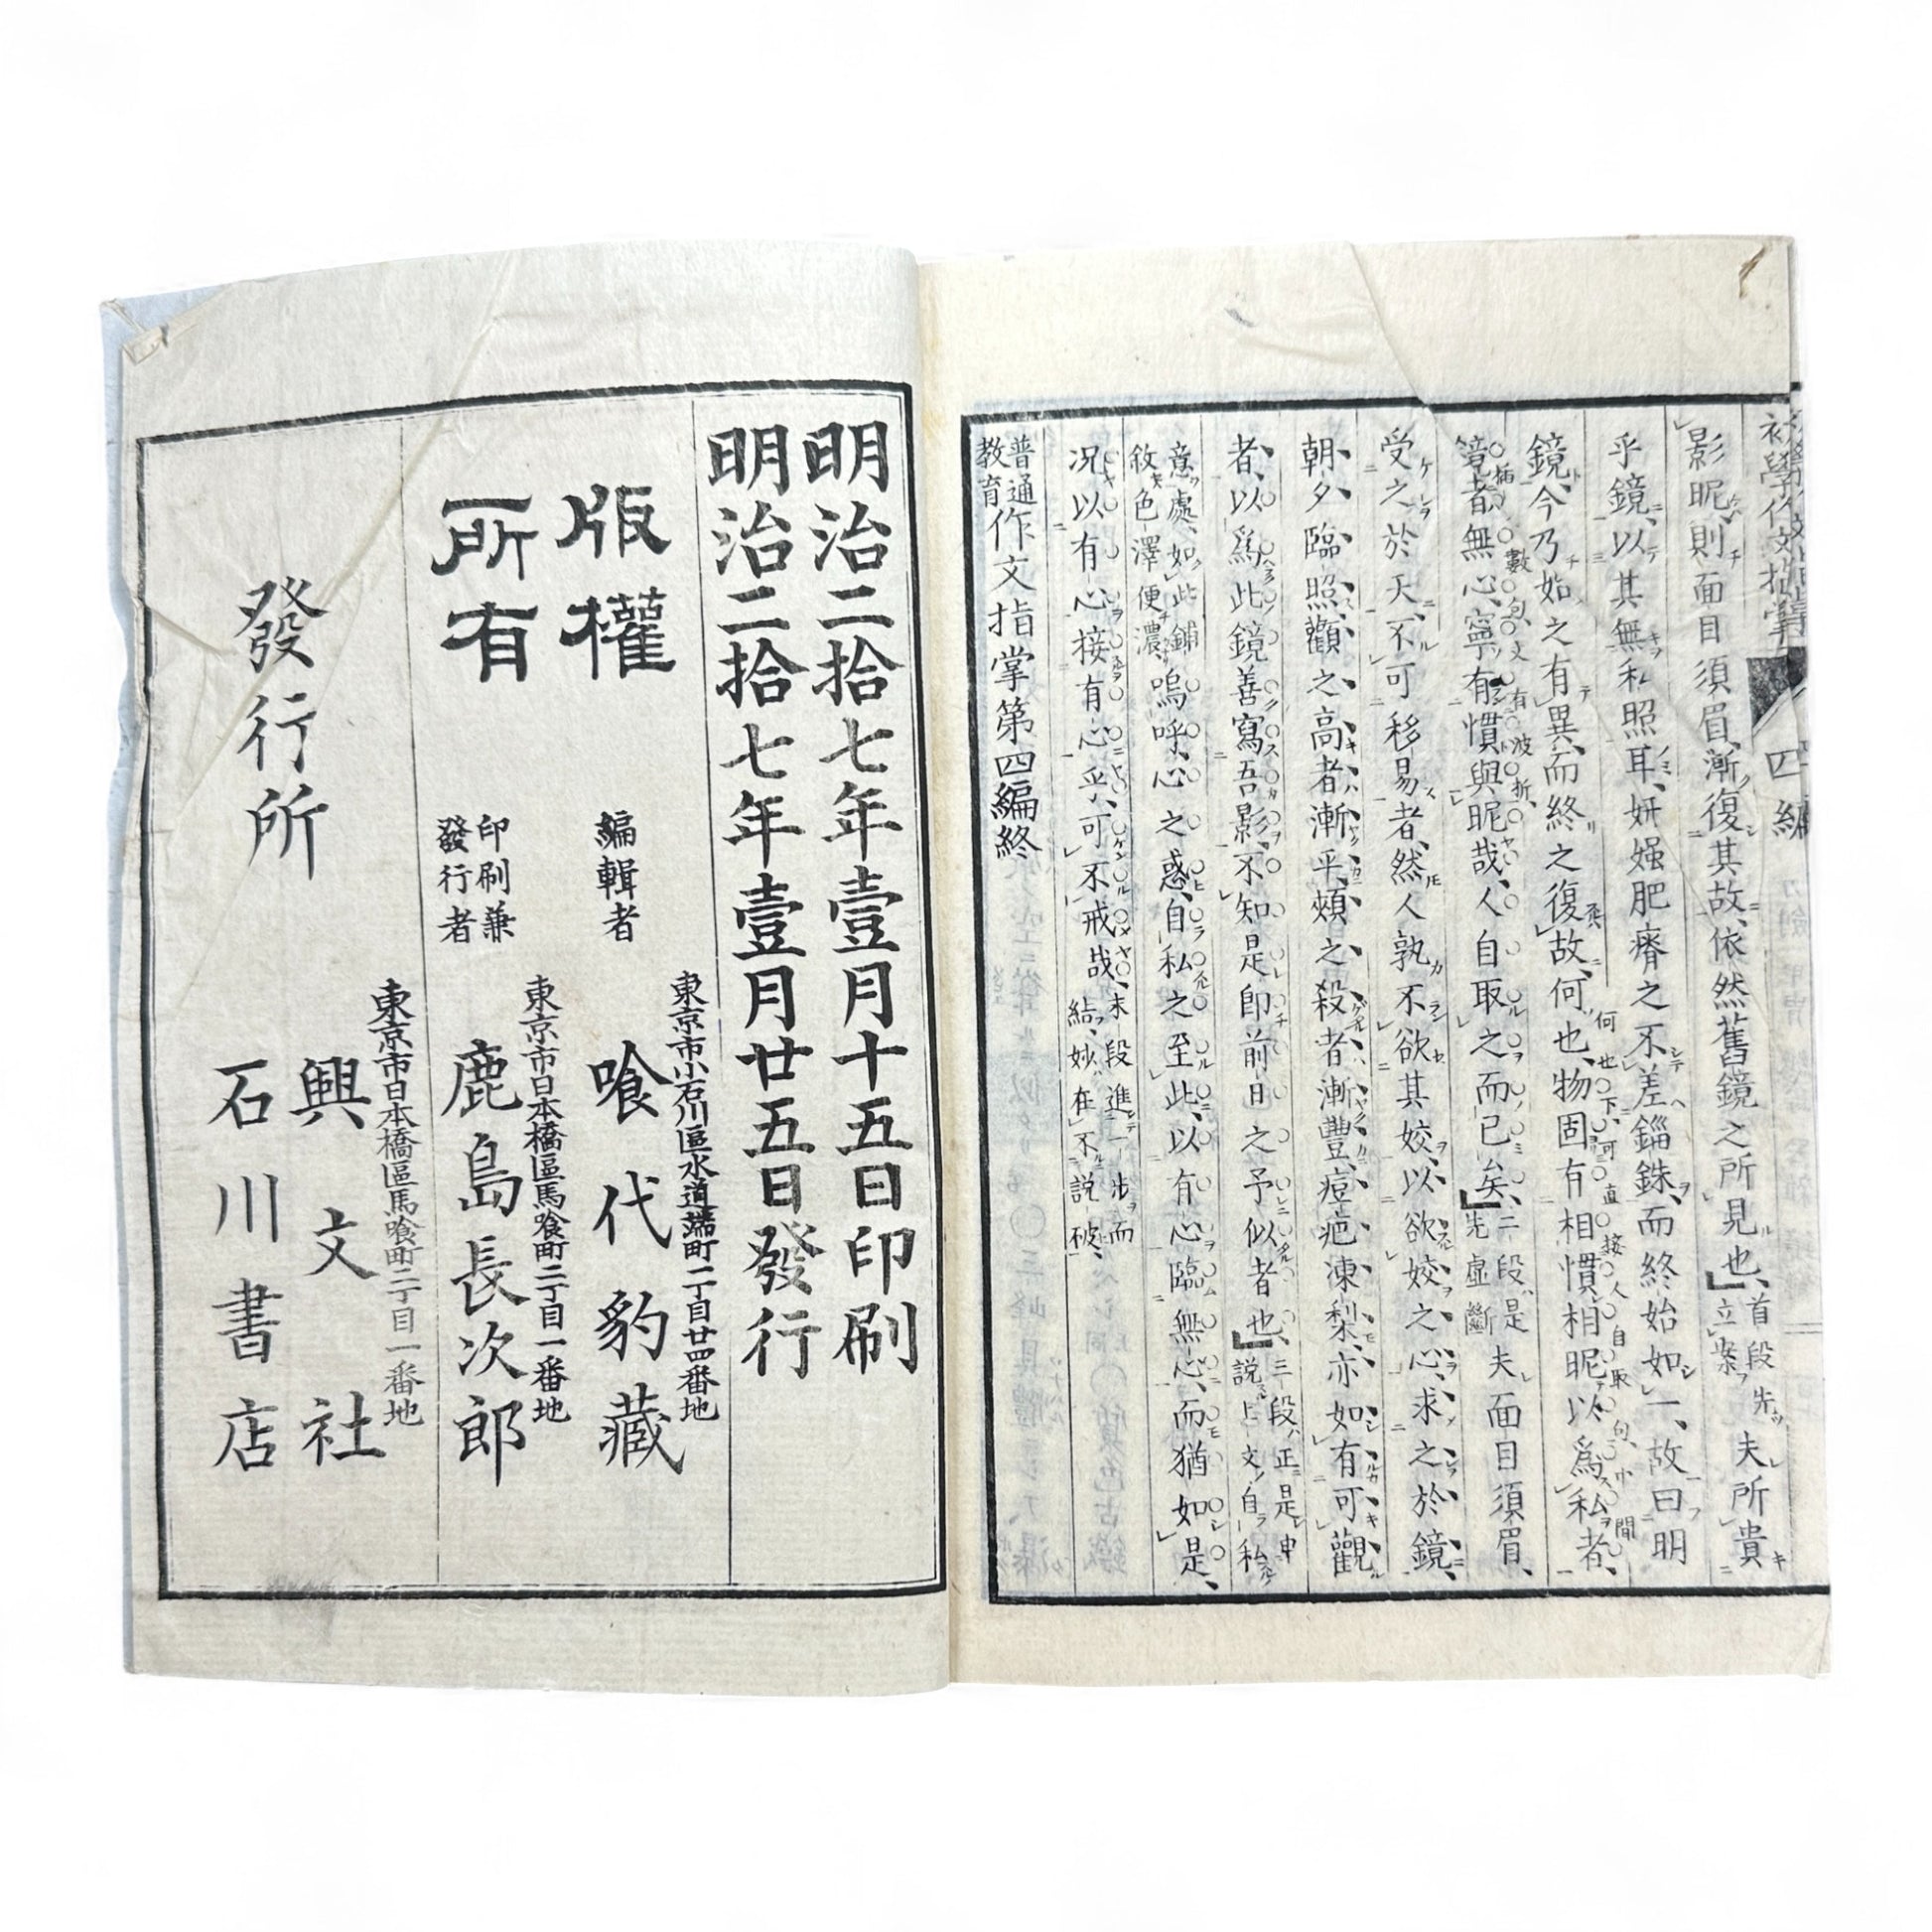 影昵則面目須眉、漸復其故、依然舊鏡之所見也、首段先立案、夫所貴
乎鏡、以其無私照耳、妍媸肥瘠之不差錙銖、而終始如一、故曰明
鏡、今乃始之有異、而終之復故、何也、何也下、可直接人自取句、中間物固有相慣相昵以爲私者、
插數句、文有波折、鏡者無心、寧有慣與昵哉、人自取之而已矣、二段是先虛斷夫面目須眉、
受之於天、不可移易者、然人孰不欲其姣、以欲姣之心、求之於鏡、
朝夕臨照、顴之高者漸平、頰之殺者漸豐、痘疤凍梨、亦如有可觀
者、以爲此鏡善寫吾影、不知是卽前日之予似者也、三段正是申說上文自私
意處、如此鋪敘色澤便濃、嗚呼、心之惑、自私之至此、以有心臨無心、而猶如是、
况以有心接有心乎、可不戒哉、末段進一步而結、妙在不說破、
普通教育作文指掌第四編終
四編
明治二拾七年壹月十五日印刷
明治二拾七年壹月廿五日發行
版權所有
東京市小石川區水道端町二丁目廿四番地
編輯者 喰代豹藏
東京市日本橋區馬喰町二丁目一番地
印刷兼發行者 鹿島長次郎
東京市日本橋區馬喰町二丁目一番地
發行所 興文社
石川書店